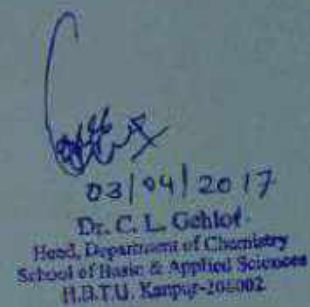 03/04/2017
Dr. C. L. Gehlot
Head, Department of Chemistry
School of Basic & Applied Sciences
H.B.T.U. Kanpur-208002